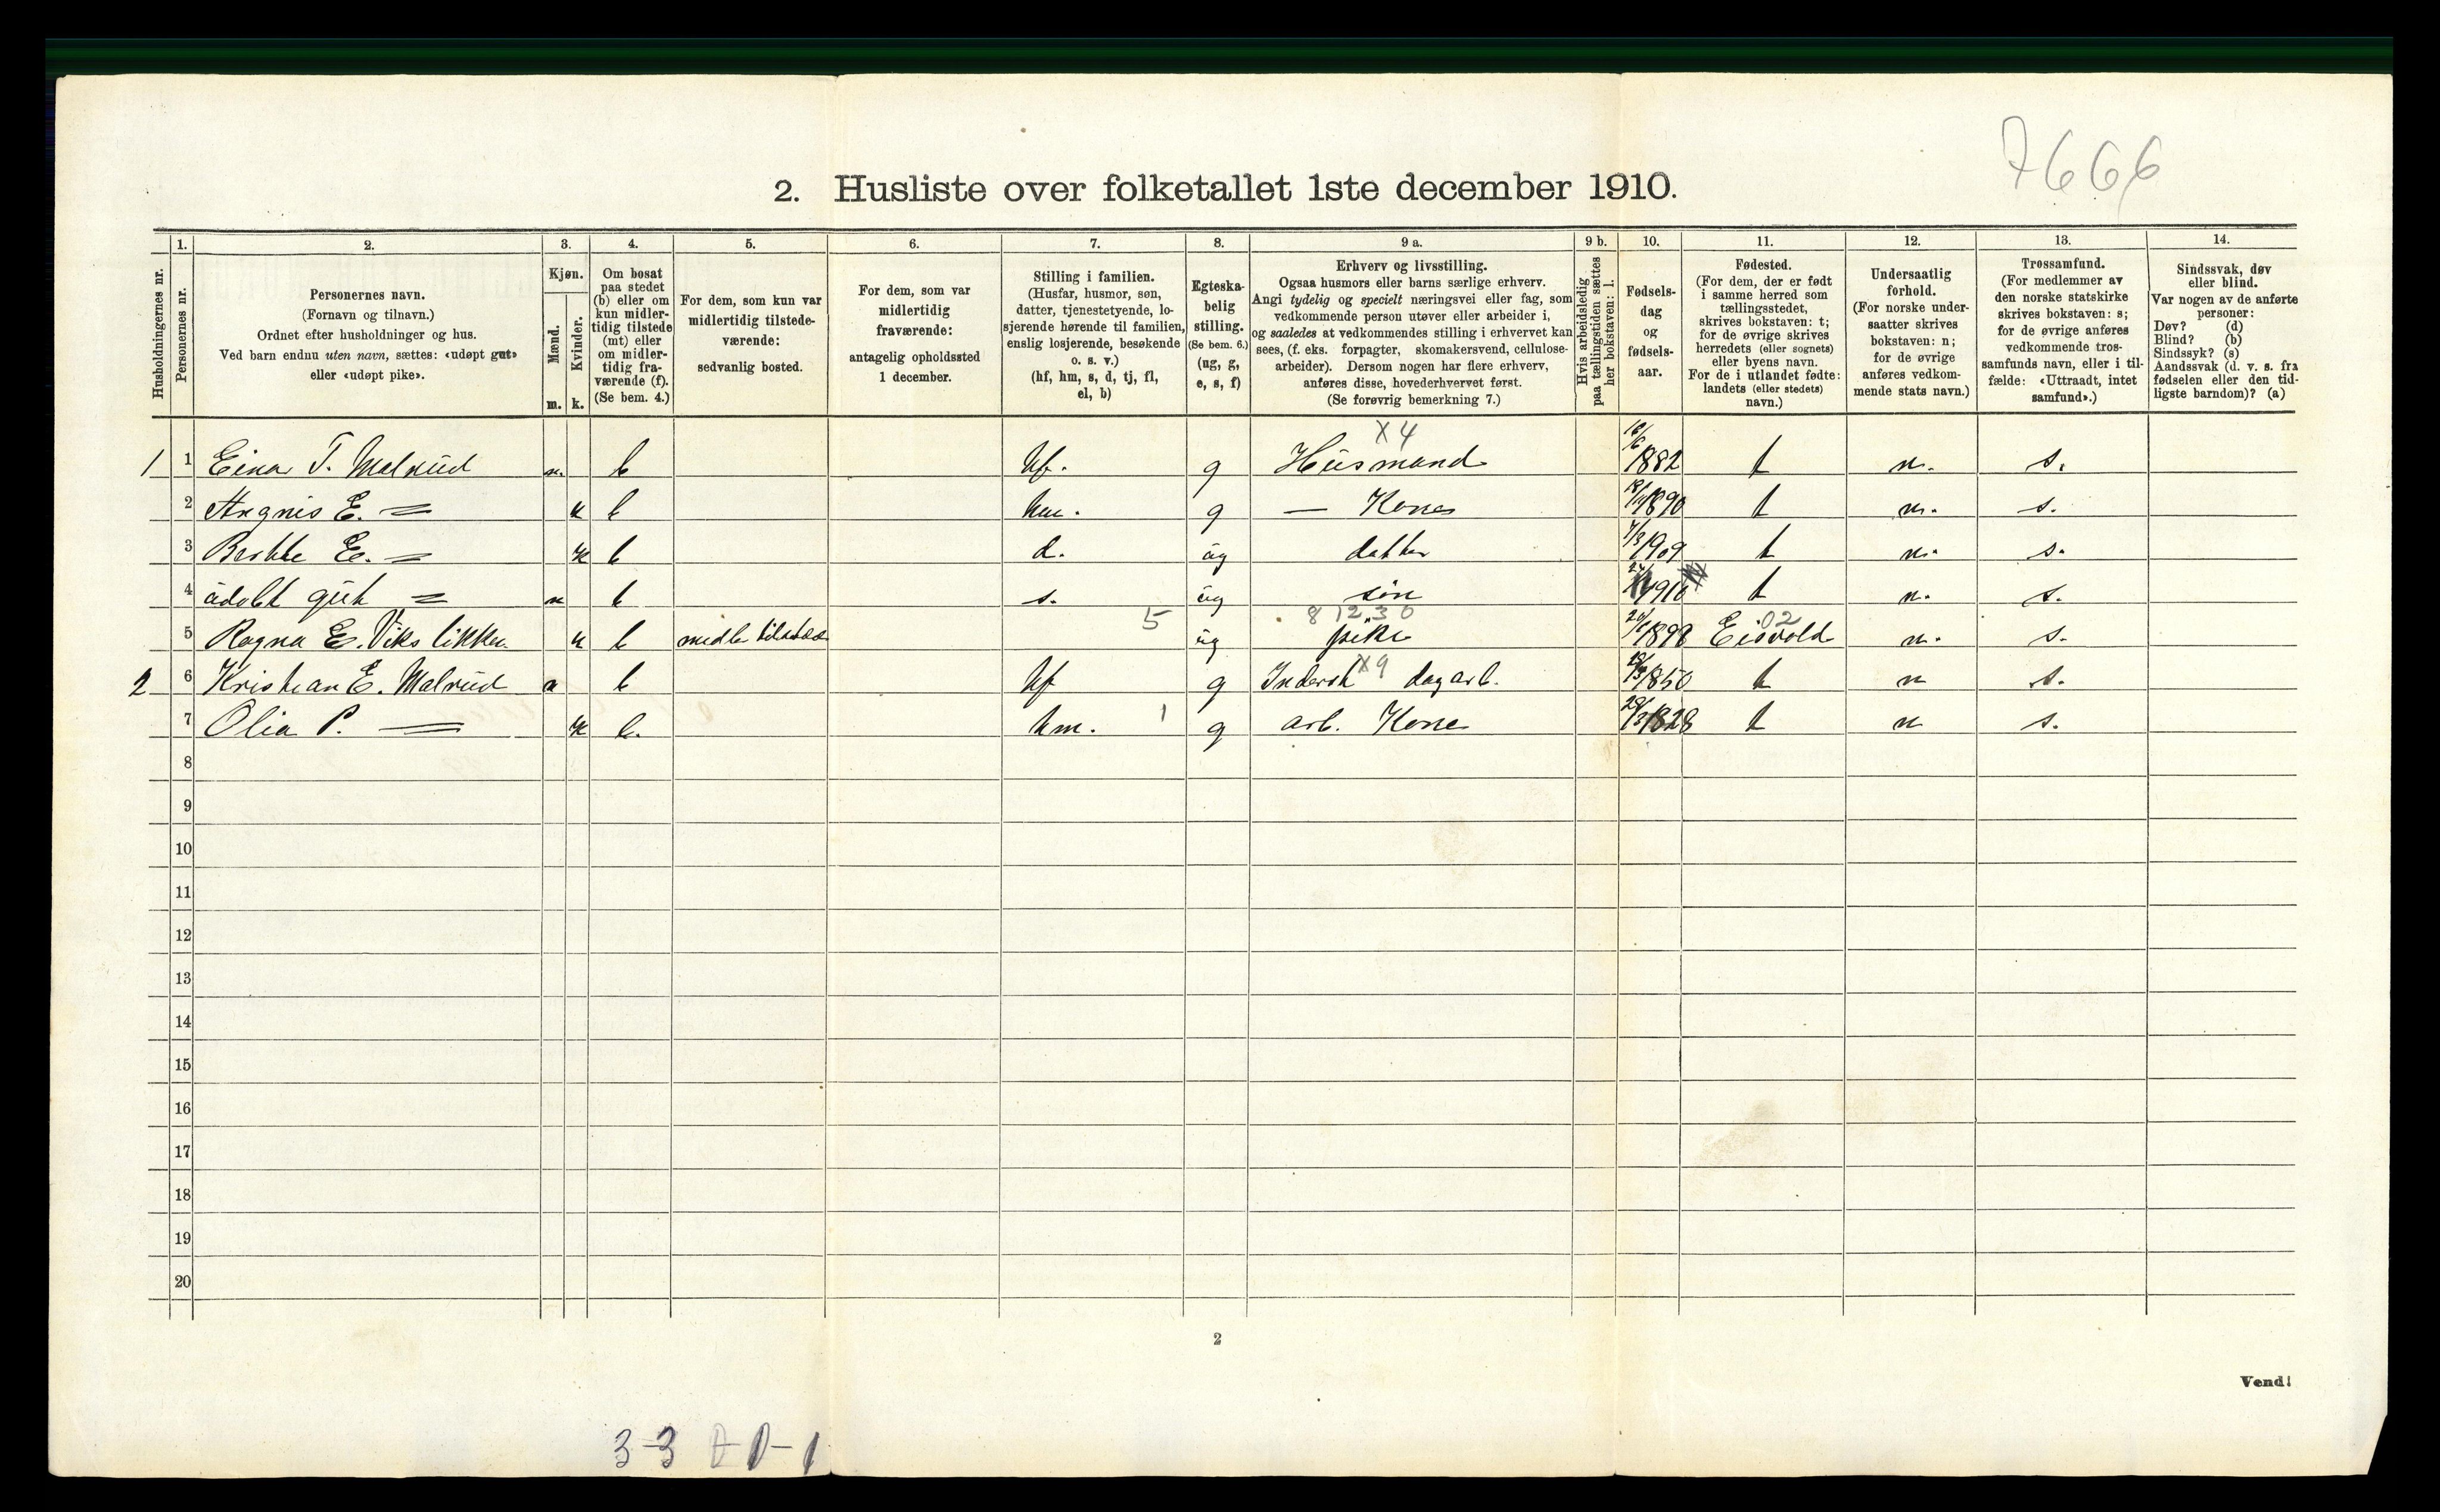 7666
2. Husliste over folketallet 1ste december 1910.
1. 2. 3. 4. 5. 6. 7. 8. 9 a. 9 b. 10. 11. 12. 13. 14.
Husholdningernes nr.
Personernes nr.
Personernes navn.
(Fornavn og tilnavn.)
Ordnet efter husholdninger og hus.
Ved barn endnu uten navn, sættes: «udøpt gut»
eller «udøpt pike».
Kjøn.
Mænd.
Kvinder.
m. k.
Om bosat
paa stedet
(b) eller om
kun midler-
tidig tilstede
(mt) eller
om midler-
tidig fra-
værende (f).
(Se bem. 4.)
For dem, som kun var
midlertidig tilstede-
værende:
sedvanlig bosted.
For dem, som var
midlertidig
fraværende:
antagelig opholdssted
1 december.
Stilling i familien.
(Husfar, husmor, søn,
datter, tjenestetyende, lo-
sjerende hørende til familien,
enslig losjerende, besøkende
o. s. v.)
(hf, hm, s, d, tj, fl,
el, b)
Egteska-
belig
stilling.
(Se bem. 6.)
(ug, g,
e, s, f)
Erhverv og livsstilling.
Ogsaa husmors eller barns særlige erhverv.
Angi tydelig og specielt næringsvei eller fag, som
vedkommende person utøver eller arbeider i,
og saaledes at vedkommendes stilling i erhvervet kan
sees, (f. eks. forpagter, skomakersvend, cellulose-
arbeider). Dersom nogen har flere erhverv,
anføres disse, hovederhvervet først.
(Se forøvrig bemerkning 7.)
Hvis arbeidsledig
paa tællingstiden sættes
her bokstaven: l.
Fødsels-
dag
og
fødsels-
aar.
Fødested.
(For dem, der er født
i samme herred som
tællingsstedet,
skrives bokstaven: t;
for de øvrige skrives
herredets (eller sognets)
eller byens navn.
For de i utlandet fødte:
landets (eller stedets)
navn.)
Undersaatlig
forhold.
(For norske under-
saatter skrives
bokstaven: n;
for de øvrige
anføres vedkom-
mende stats navn.)
Trossamfund.
(For medlemmer av
den norske statskirke
skrives bokstaven: s;
for de øvrige anføres
vedkommende tros-
samfunds navn, eller i til-
fælde: «Uttraadt, intet
samfund».)
Sindssvak, døv
eller blind.
Var nogen av de anførte
personer:
Døv? (d)
Blind? (b)
Sindssyk? (s)
Aandssvak (d. v. s. fra
fødselen eller den tid-
ligste barndom)? (a)
X4
1 1 Einar T. Malrud m. b hf. g Husmand 16/6 1882 t n. s.
2 Angnis E. = k b hm. g — Kone 1890 t n. s.
3 Berthe E. = k b d. ug datter 7/3 1909 t n. s.
4 udøbt gut = m b s. ug søn 1910 t n. s.
5 8 12 30 02
5 Ragna E. Vikslikken k b midle tilstede ug pike 1898 Eisvold n. s.
X9
2 6 Kristian E. Malrud m b hf g Inderst dagarb. 1850 t n s.
7 Olia P. — k b. hm. 1 g arb. Kone 1828 t n s.
8
9
10
11
12
13
14
15
16
17
18
19
20
2
Vend!
3-3